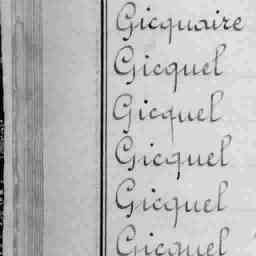 Gicquaire
Gicquel
Gicquel
Gicquel
Gicquel
Gicquel